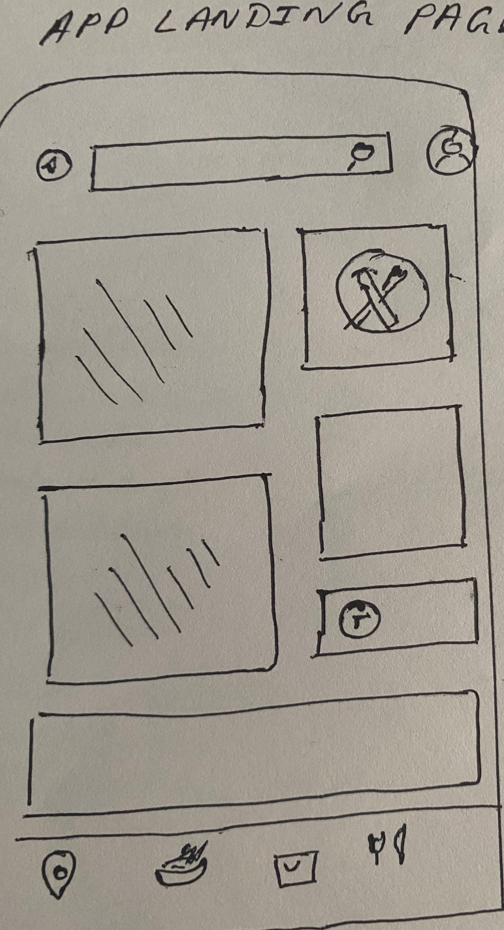 APP LANDING PAGE